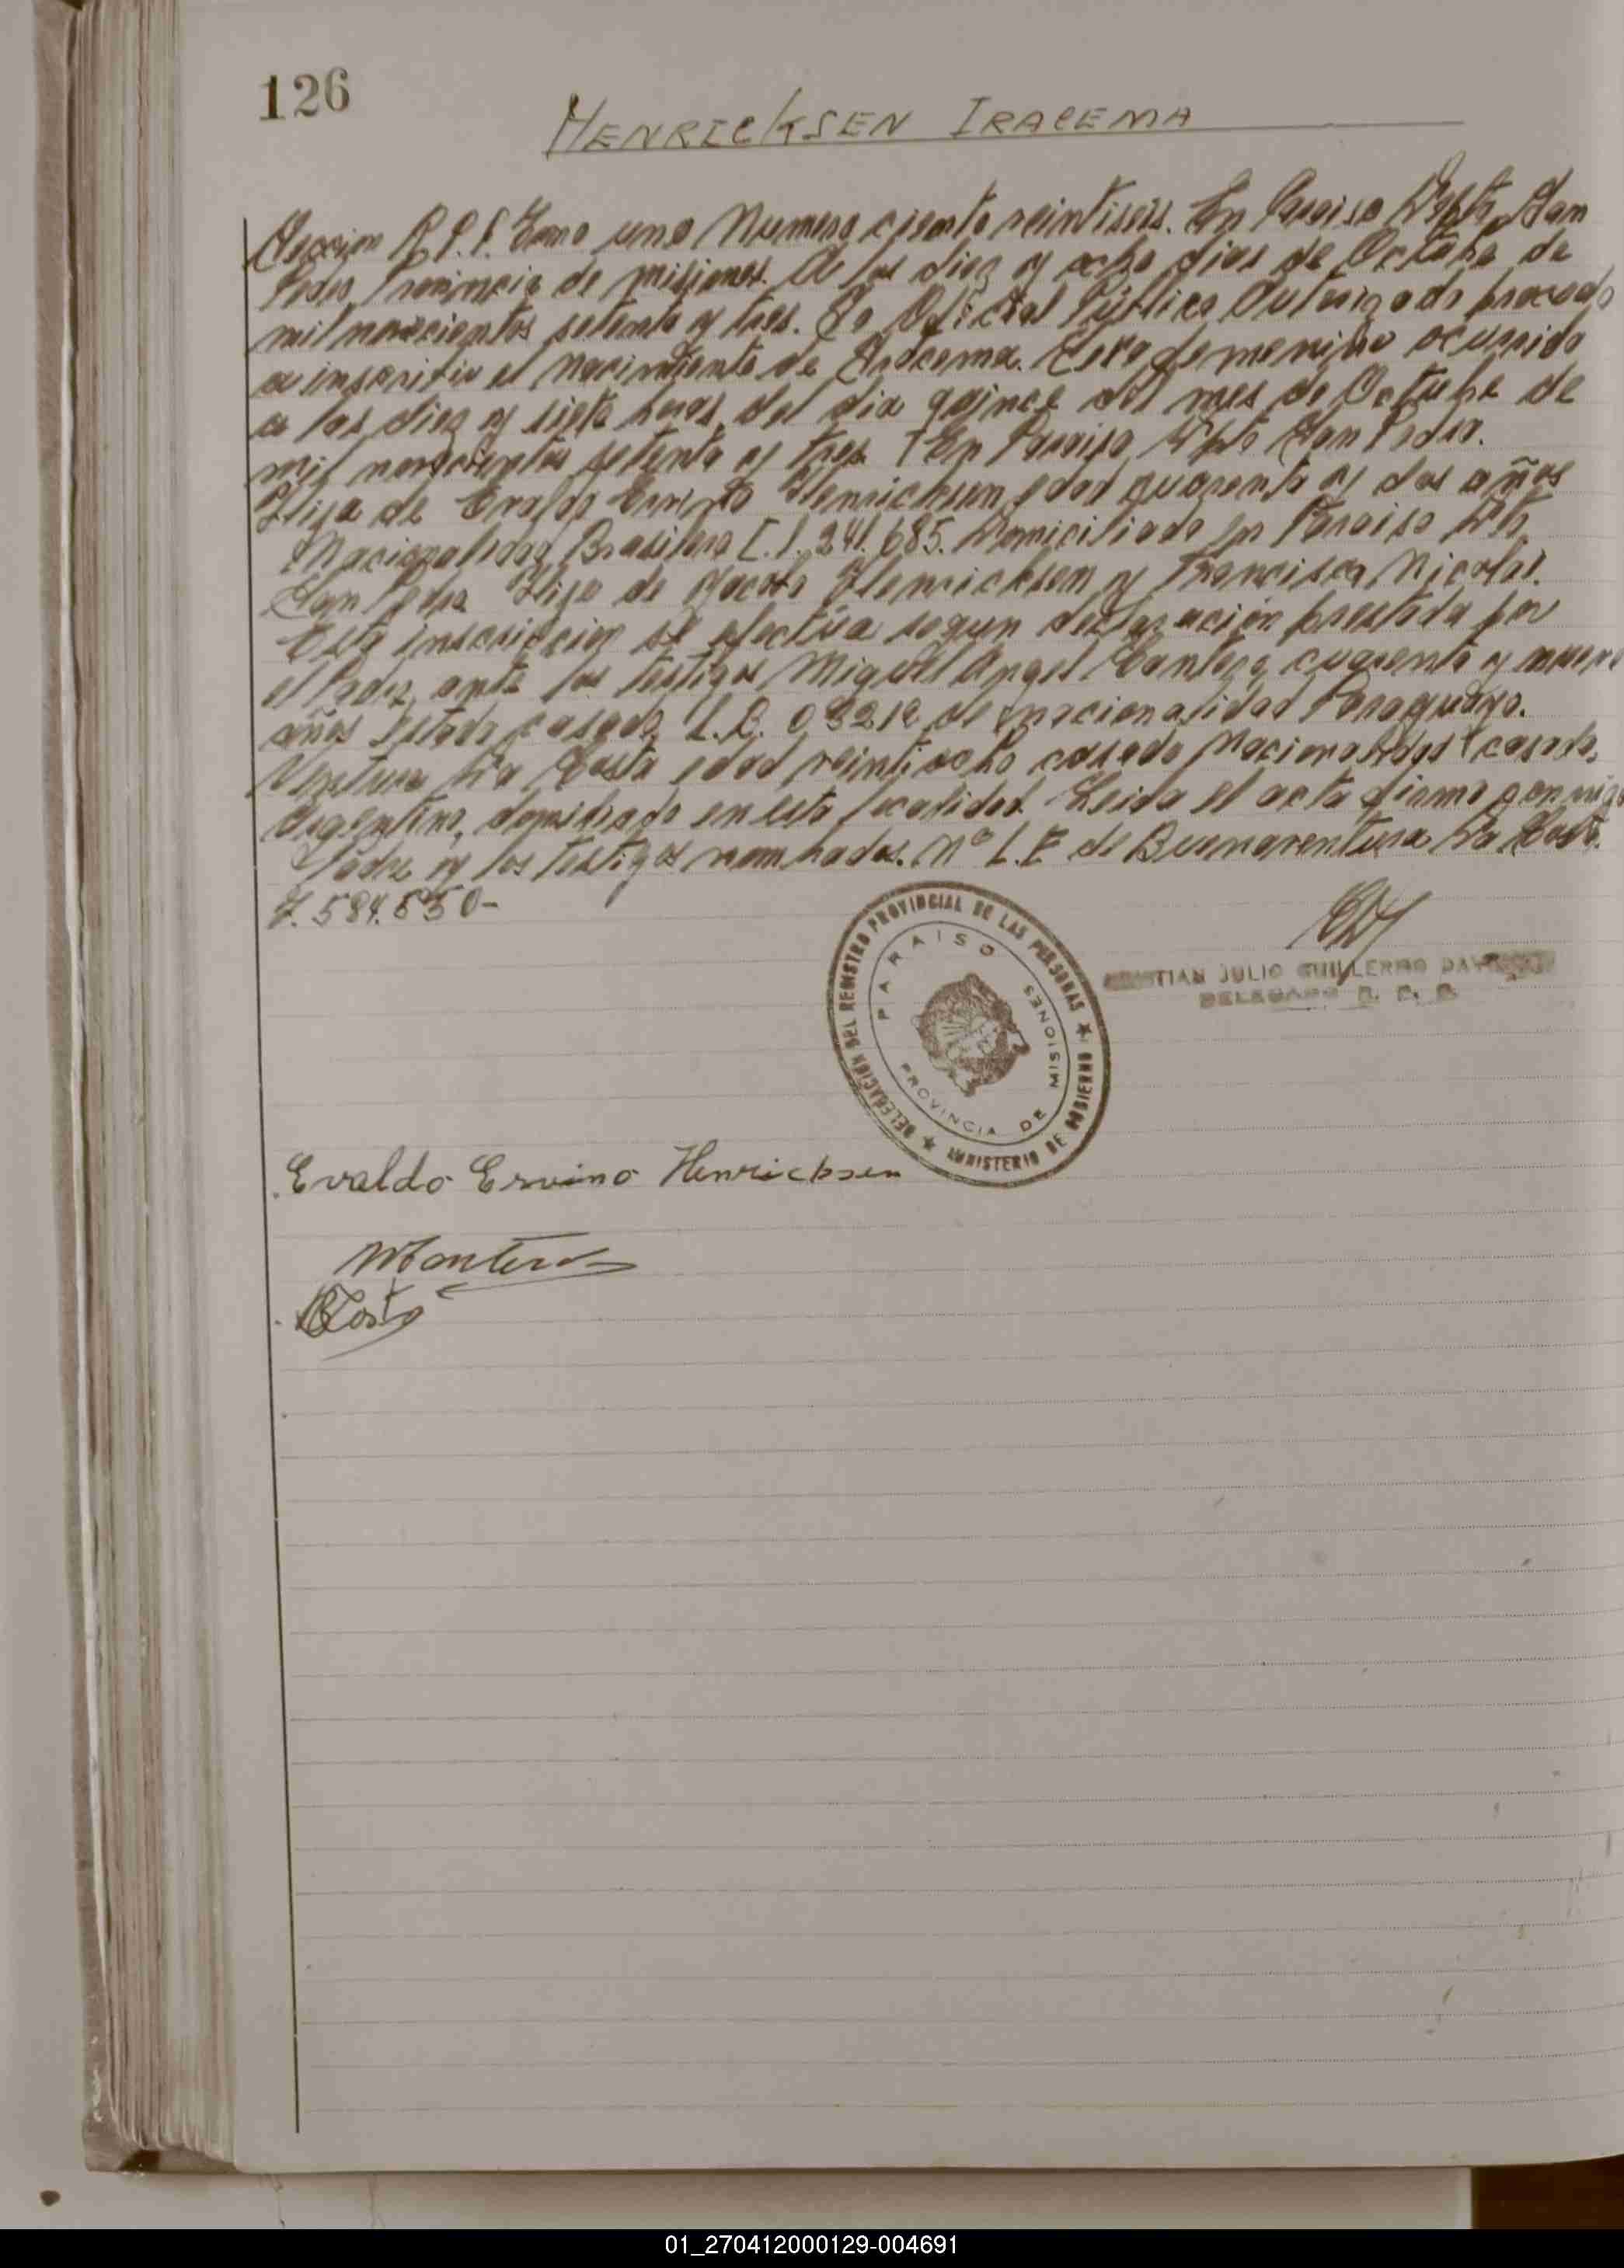 126
HENRICKSEN IRACEMA
Seccion R.P.P. Tomo uno Numero ciento veintiseis. En Paraiso Dpto San
Pedro Provincia de misiones. A los diez y ocho dias de Octubre de
mil novecientos setenta y tres. Yo Oficial Público Autorizado procedo
a inscribir el nacimiento de Iracema. Sexo femenino ocurrido
a las diez y siete horas del dia quince del mes de Octubre de
mil novecientos setenta y tres En Paraiso, Dpto San Pedro.
Hija de Evaldo Henricksen edad cuarenta y dos años
Nacionalidad Brasilera C.I. 241.685. Domiciliado en Paraiso Dto.
San Pedro Hijo de Jacobo Henricksen y Francisca Nicolas.
Esta inscripcion se efectúa segun declaración prestada por
el Padre ante los testigos Miguel Angel cuarenta y nueve
años Estado casado, de nacionalidad Paraguaya.
Ventura Da Costa edad veintiocho casado Nacionalidad casado,
Argentino, domiciliado en esta localidad. Leida el acta firma conmigo
Padre y los testigos nombrados. Nº L.E de Buenaventura Da Costa.
7.584.550-
DELEGACIÓN DEL REGISTRO PROVINCIAL DE LAS PERSONAS ★ MINISTERIO DE GOBIERNO ★
PARAISO
PROVINCIA DE MISIONES
JULIO GUILLERMO
DELEGADO R. P. P.
Evaldo Ervino Henricksen
01_270412000129-004691